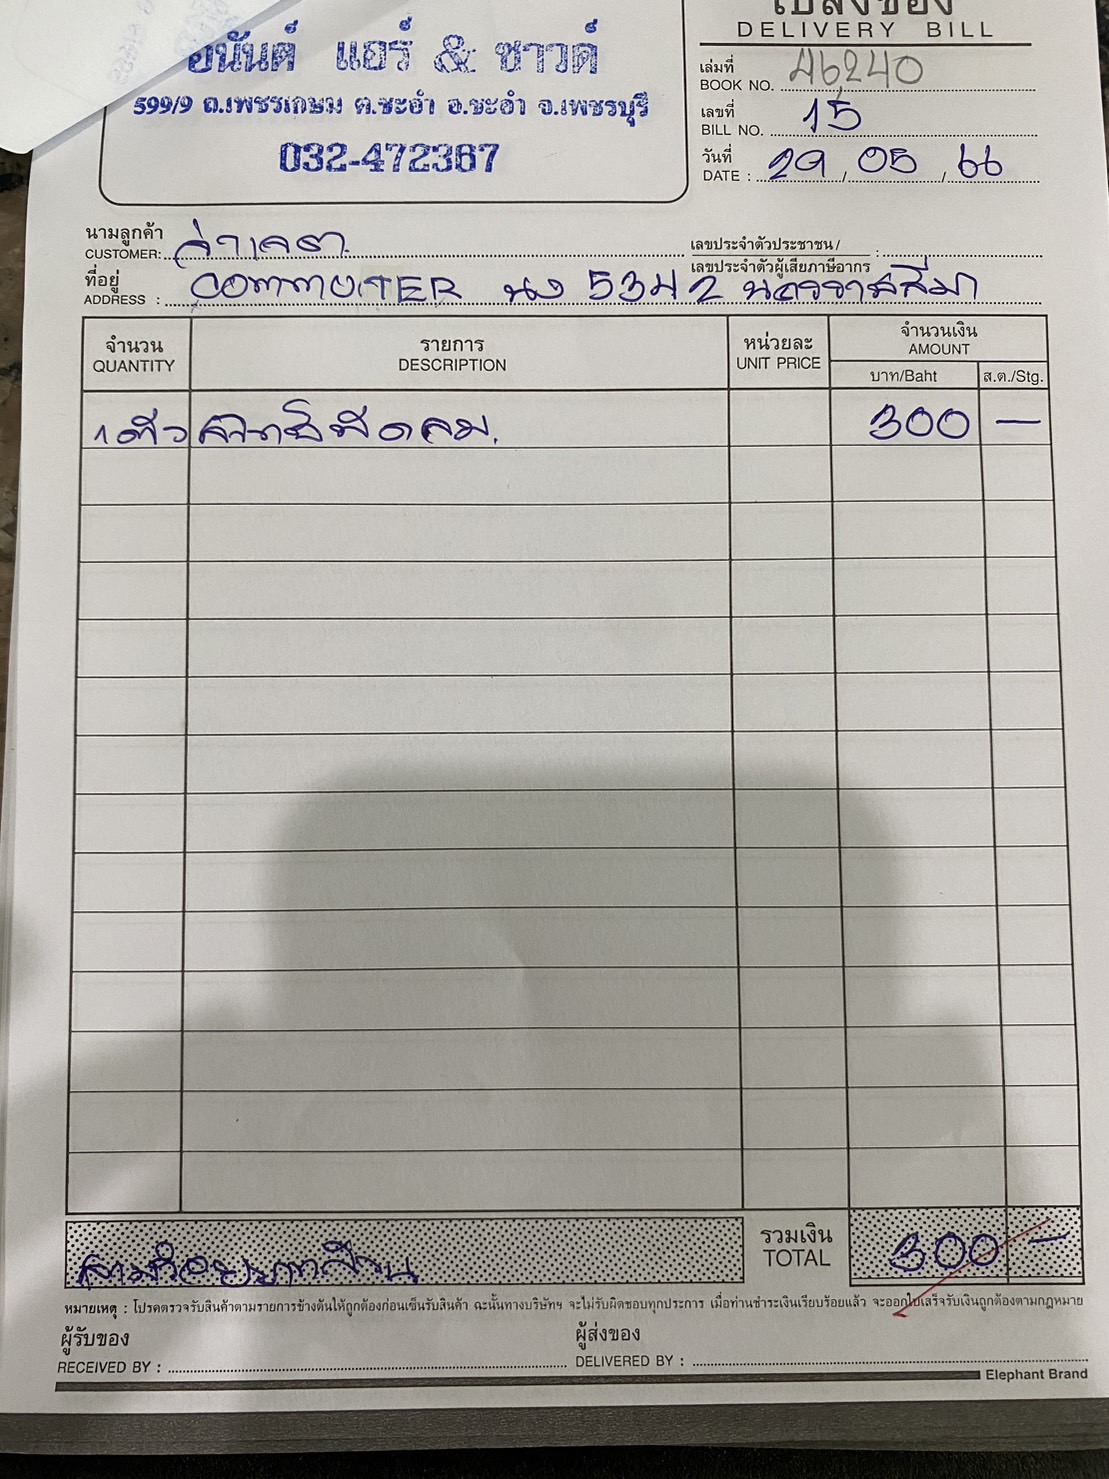 ใบส่งของ
DELIVERY BILL
อนันต์ แอร์ & ซาวด์
599/9 ถ.เพชรเกษม ต.ชะอำ อ.ชะอำ จ.เพชรบุรี
032-472367
เล่มที่
BOOK NO. 46,240
เลขที่
BILL NO. 15
วันที่
DATE : 29 / 05 / 66
นามลูกค้า
CUSTOMER:
เลขประจำตัวประชาชน /
เลขประจำตัวผู้เสียภาษีอากร :
ที่อยู่
ADDRESS : COMMUTER นง 5342 นครราชสีมา
จำนวน รายการ หน่วยละ จำนวนเงิน
QUANTITY DESCRIPTION UNIT PRICE AMOUNT
บาท/Baht ส.ต./Stg.
1 ตัว 300 —
สามร้อยบาทถ้วน
รวมเงิน
TOTAL 300 —
หมายเหตุ : โปรดตรวจรับสินค้าตามรายการข้างต้นให้ถูกต้องก่อนเซ็นรับสินค้า ฉะนั้นทางบริษัทฯ จะไม่รับผิดชอบทุกประการ เมื่อท่านชำระเงินเรียบร้อยแล้ว จะออกใบเสร็จรับเงินถูกต้องตามกฎหมาย
ผู้รับของ ผู้ส่งของ
RECEIVED BY : DELIVERED BY :
Elephant Brand